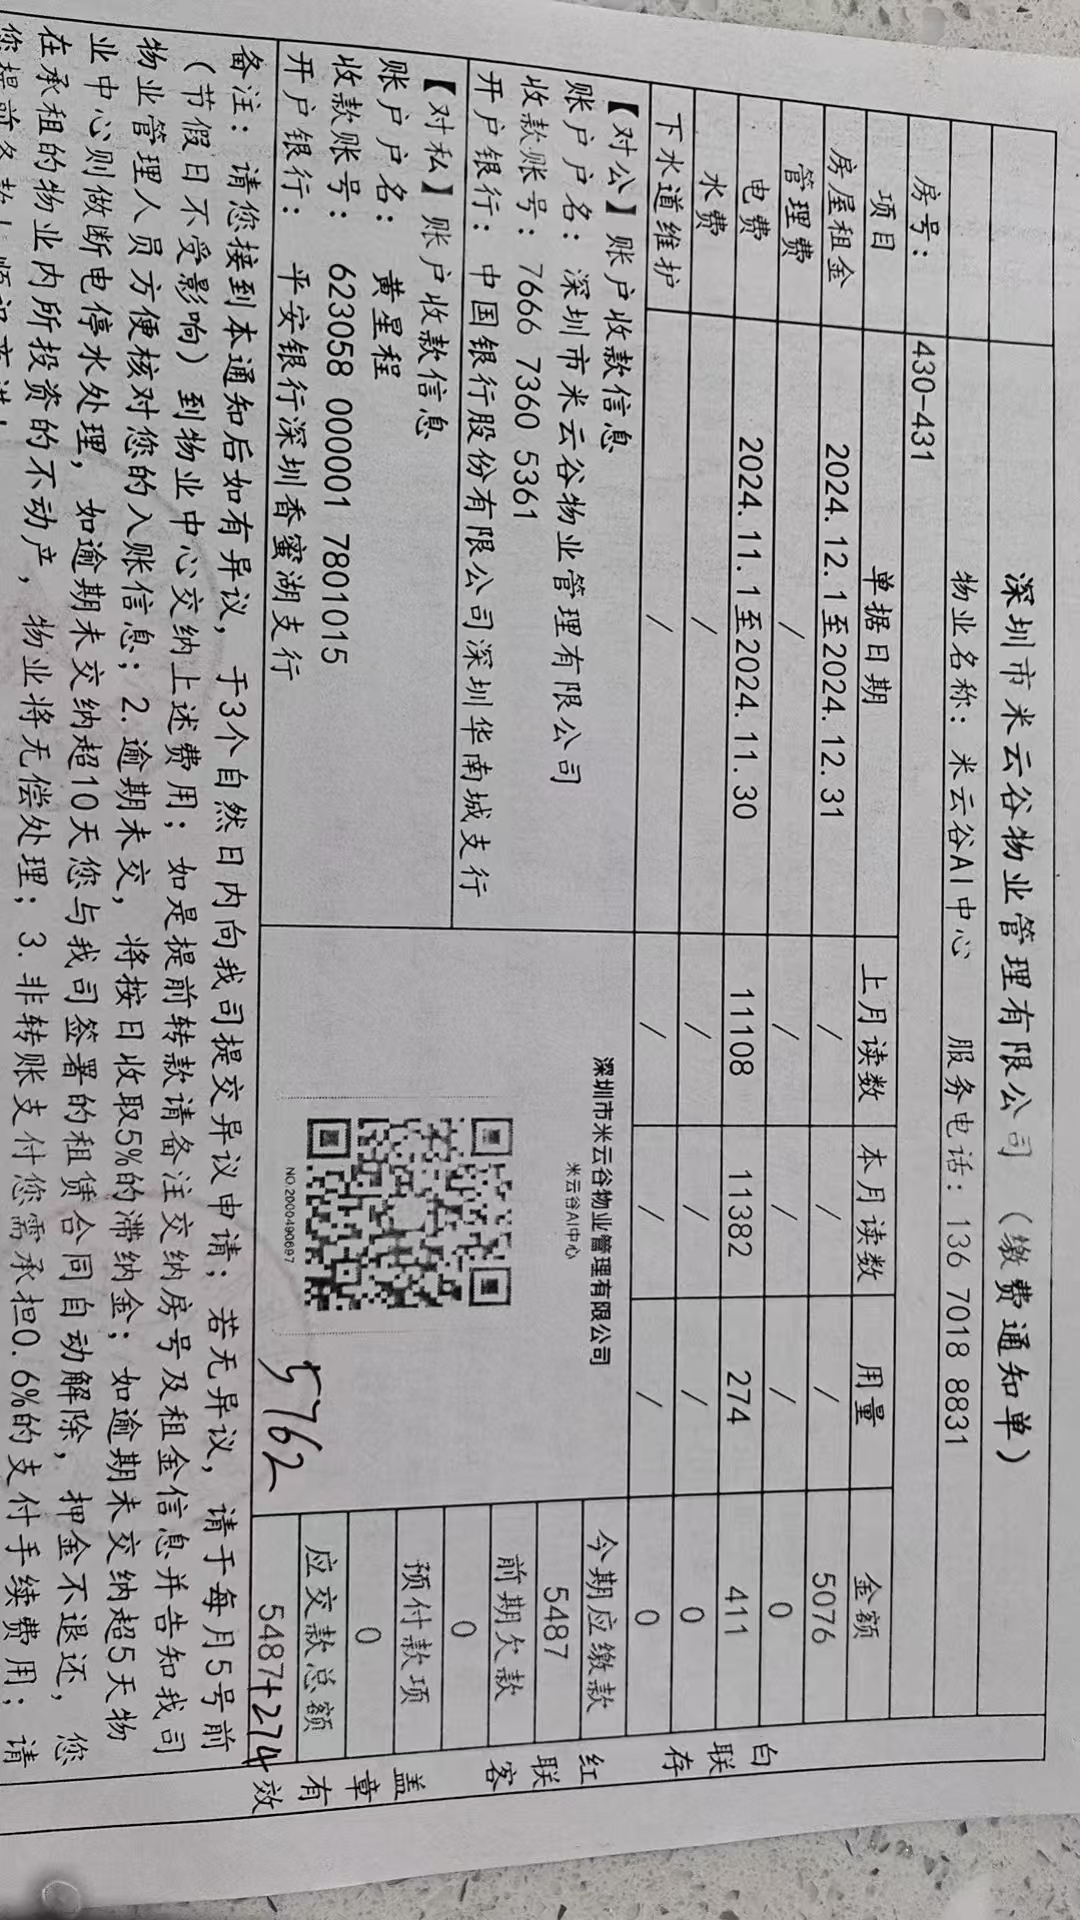 深圳市米云谷物业管理有限公司（缴费通知单）
物业名称：米云谷AI中心 服务电话：136 7018 8831
房号： 430-431
项目 单据日期 上月读数 本月读数 用量 金额
房屋租金 2024.12.1至2024.12.31 / / / 5076
管理费 / / / / 0
电费 2024.11.1至2024.11.30 11108 11382 274 411
水费 / / / / 0
下水道维护 / / / / 0
【对公】账户收款信息
账户户名：深圳市米云谷物业管理有限公司
收款账号：7666 7360 5361
开户银行：中国银行股份有限公司深圳华南城支行
【对私】账户收款信息
账户户名：黄星程
收款账号：623058 000001 7801015
开户银行：平安银行深圳香蜜湖支行
深圳市米云谷物业管理有限公司
米云谷AI中心
NO.2000490697
5762
今期应缴款
5487
前期欠款
0
预付款项
0
应交款总额
5487+274
白联存
红联客
盖章有效
备注：请您接到本通知后如有异议，于3个自然日内向我司提交异议申请；若无异议，请于每月5号前
（节假日不受影响）到物业中心交纳上述费用；如是提前转款请备注交纳房号及租金信息并告知我司
物业管理人员方便核对您的入账信息；2.逾期未交，将按日收取5%的滞纳金；如逾期未交纳超5天物
业中心则做断电停水处理，如逾期未交纳超10天您与我司签署的租赁合同自动解除，押金不退还，您
在承租的物业内所投资的不动产，物业将无偿处理；3.非转账支付您需承担0.6%的支付手续费用；请
您提前